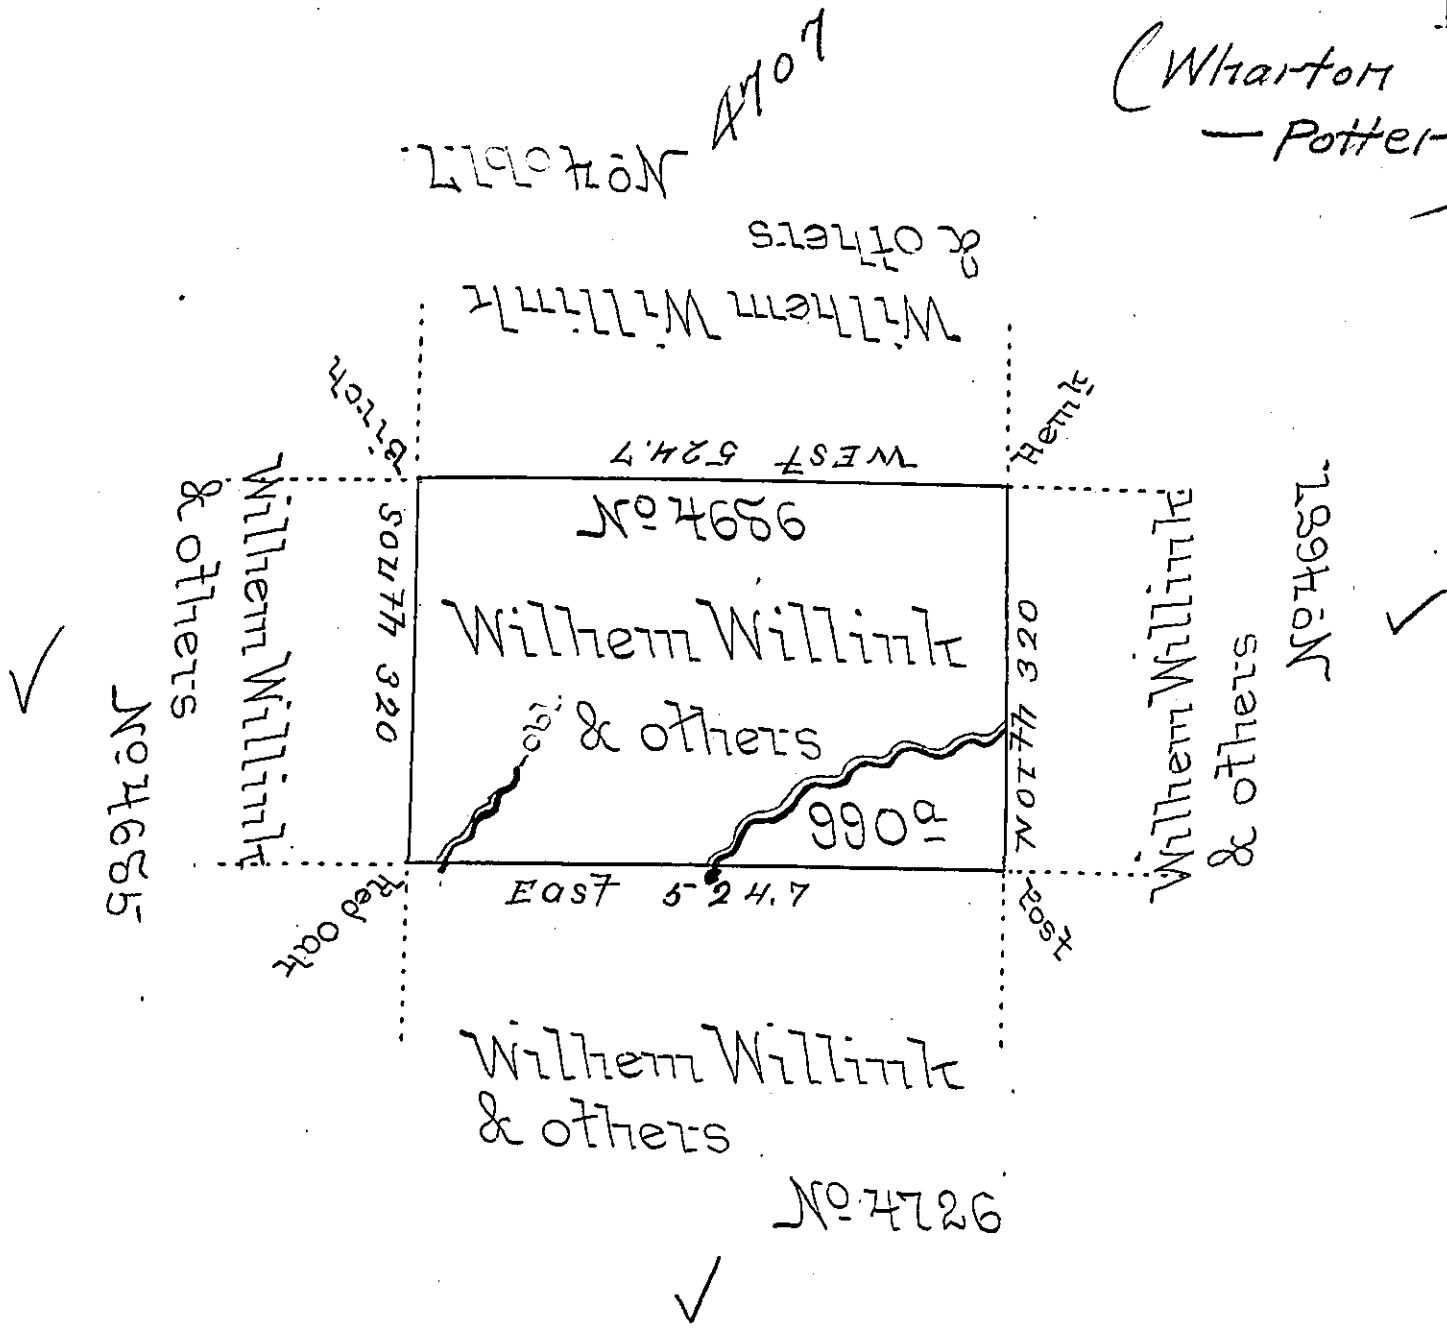 4707
(Wharton
— Potter
& others
Wilhem Willink
Birch
Hemk
West 524.7
No 4686
Wilhem Willink
& others
990a
South 320
North 320
East 524.7
Red oak
Post
Wilhem Willink
& others
No 4685
Wilhem Willink
& others
No 4687
Wilhem Willink
& others
No 4726